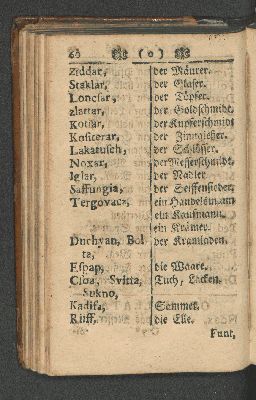 60 ( o )
Ziddar, der Mäurer.
Staklar, der Glaser.
Loncsar, der Töpfer.
zlattar, der Goldschmidt.
Kotlar, der Kupferschmidt
Kositerar, der Zinngießer.
Lakatusch, der Schlosser.
Noxar, der Messerschmidt.
Iglar, der Nadler
Saffungia, der Seiffensieder.
Tergovacz, ein Handelsmann
ein Kaufmann.
ein Krämer.
Duchyan, Bol- der Kramladen.
ta,
Espap, die Waare.
Csoa, Svitta, Tuch, Lacken.
Sukno,
Kadifa, Sammet.
Riff, die Elle.
Funt,